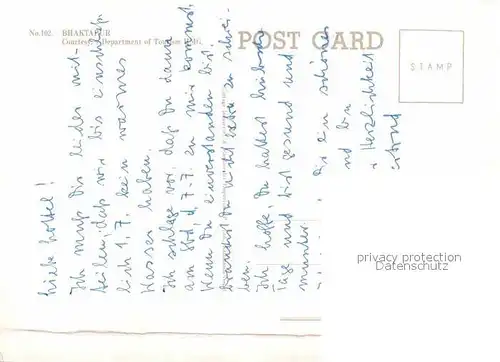 No.102. BHAKTAPUR
Courtesy: Department of Tourism HMG.
POST CARD
STAMP
Liebe Lottel!
Ich muß Dir leider mit-
teilen, daß wir bis einschließ-
lich 1.7. kein warmes
Wasser haben.
Ich schlage vor, daß Du dann
am 7.7. zu mir kommst.
Wenn Du einverstanden bist,
brauchst Du nicht extra zu schrei-
ben.
Ich hoffe, Du hattest hübsche
Tage und bist gesund und
munter.
Dir ein schönes
und bin
Herzlichkeit
privacy protection
Datenschutz